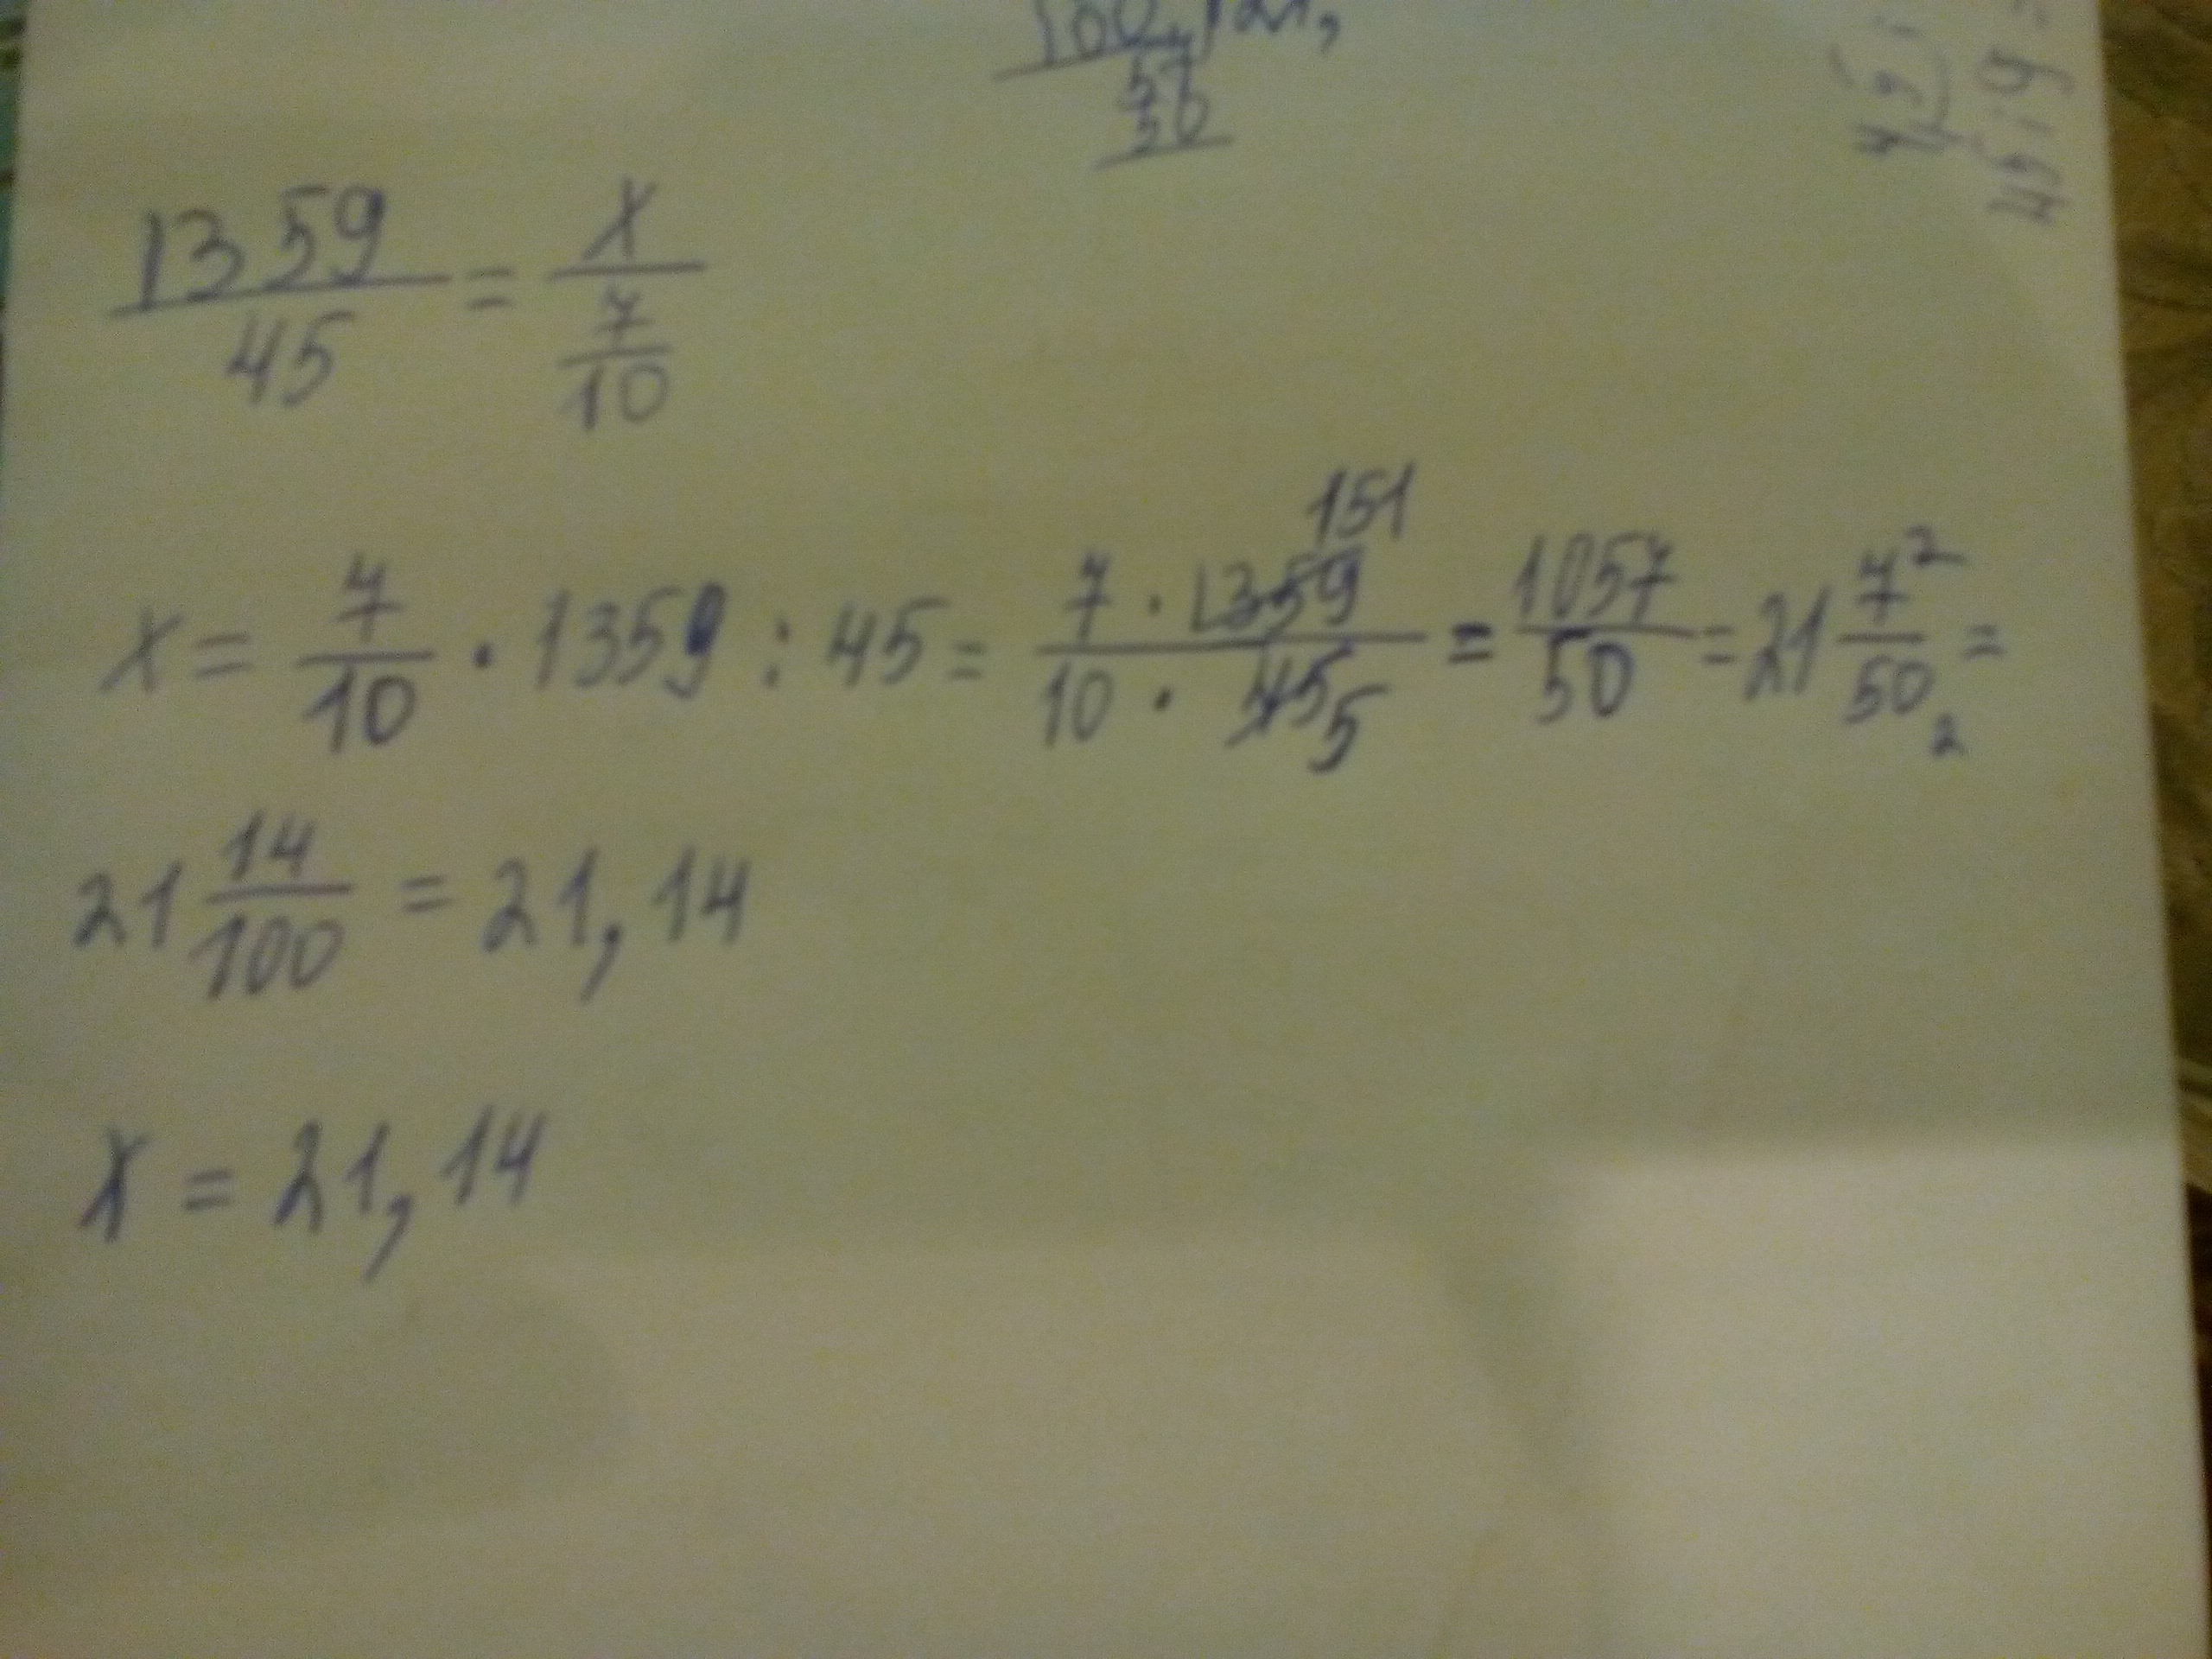 1359/45 = x/(7/10)
x = 7/10 · 1359 : 45 = 7 · 1359 151 / 10 · 45 5 = 1057/50 = 21 7²/50₂ =
21 14/100 = 21,14
x = 21,14